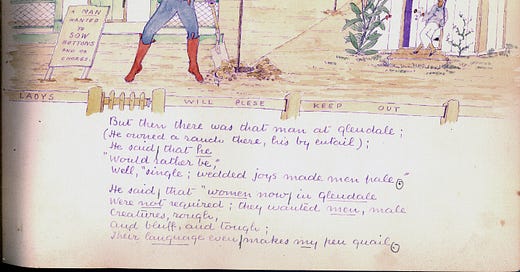 A MAN
WANTED
TO
SOW
BUTTONS
AND DO
CHORES.
LADYS WILL PLESE KEEP OUT
But then there was that man at Glendale;
(He owned a ranch there, his by entail);
He said, that he
"Would rather be,"
Well, "single; wedded joys made men pale."
He said, that "women now, in Glendale
Were not required; they wanted men, male
Creatures, rough,
And bluff, and tough;
Their language even makes my pen quail.